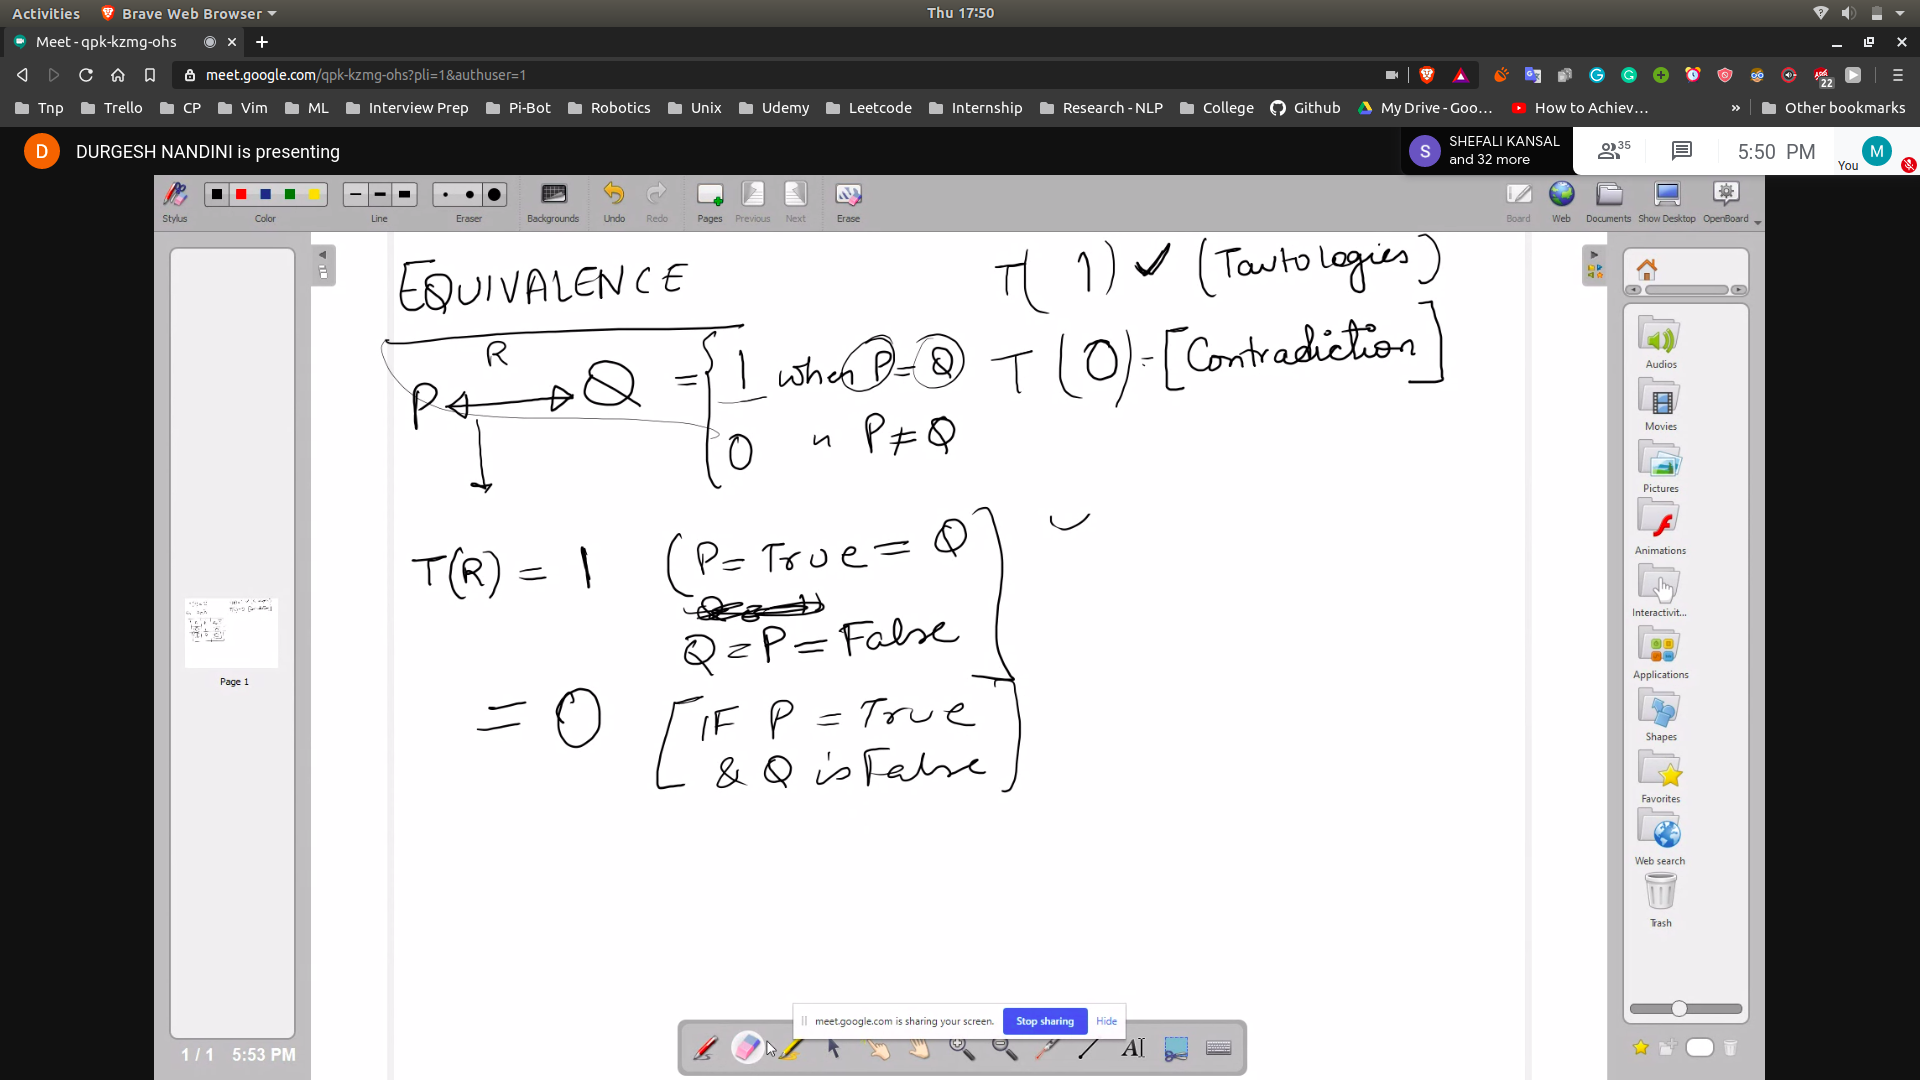 Activities Brave Web Browser Thu 17:50
Meet - qpk-kzmg-ohs
meet.google.com/qpk-kzmg-ohs?pli=1&authuser=1
22
Tnp Trello CP Vim ML Interview Prep Pi-Bot Robotics Unix Udemy Leetcode Internship Research - NLP College Github My Drive - Goo... How to Achiev... » Other bookmarks
D DURGESH NANDINI is presenting
S SHEFALI KANSAL
and 32 more
35
5:50 PM
You M
Stylus Color Line Eraser Backgrounds Undo Redo Pages Previous Next Erase Board Web Documents Show Desktop OpenBoard
EQUIVALENCE
T( 1) ✓ (Tautologies)
R
P ↔ Q = { 1 when P = Q
0 " P ≠ Q
T (0) = [Contradiction]
T(R) = 1 (P = True = Q
Q = P = False
= 0 [IF P = True
& Q is False]
Page 1
1 / 1 5:53 PM
Audios
Movies
Pictures
Animations
Interactivit...
Applications
Shapes
Favorites
Web search
Trash
meet.google.com is sharing your screen. Stop sharing Hide